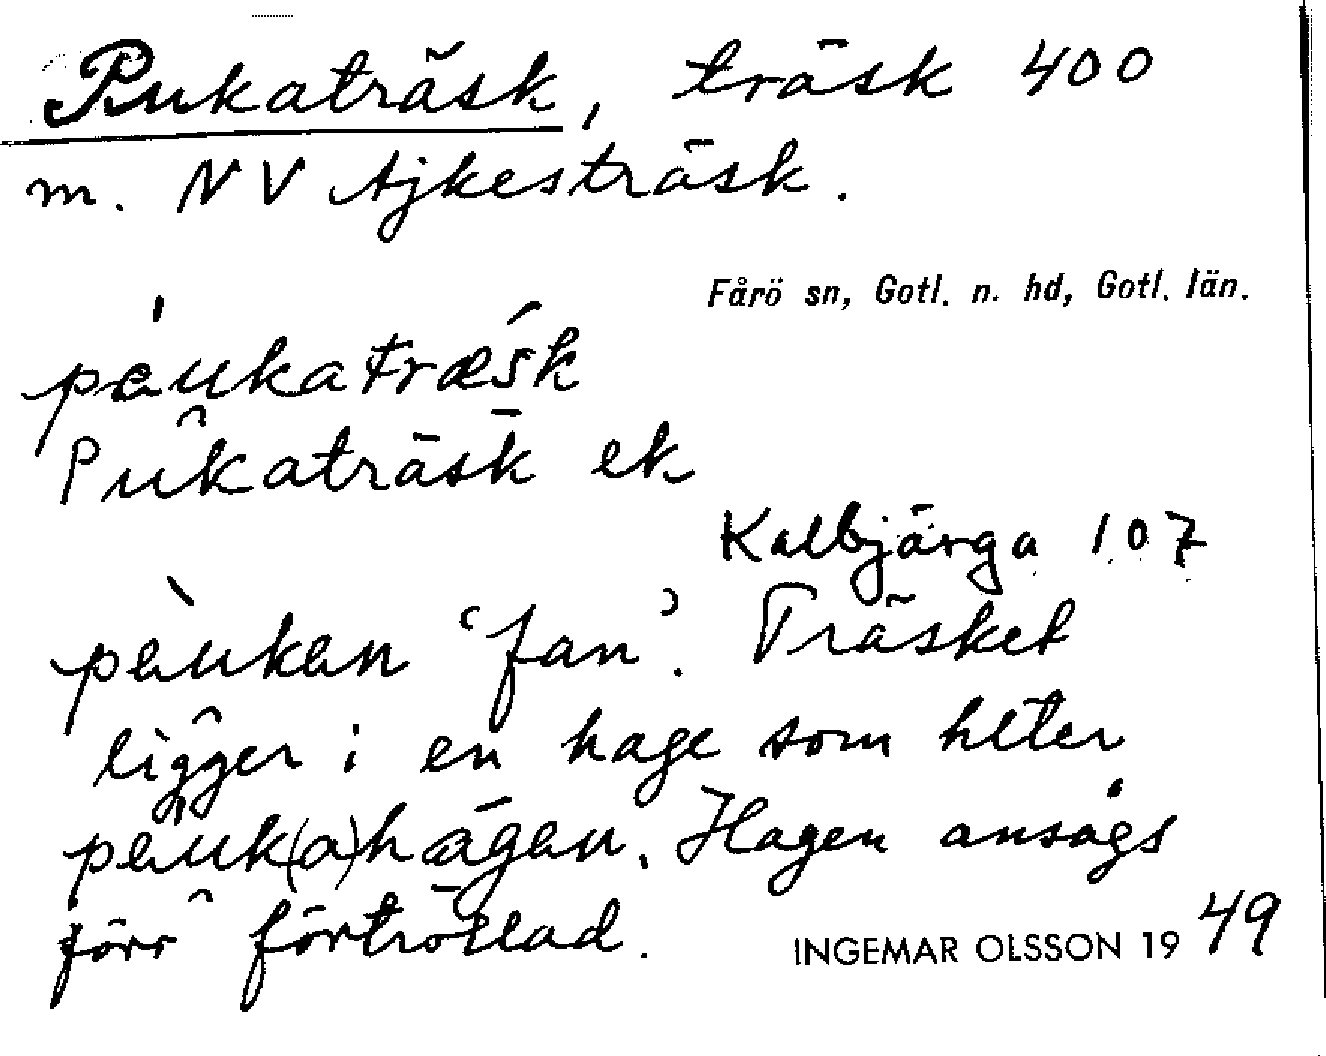 Pukaträsk, träsk 400
m. NV Ajkesträsk.
Fårö sn, Gotl. n. hd, Gotl. län.
pàukatræsk
Pukaträsk ek
Kalbjärga 107
pàukan 'fan'. Träsket
ligger i en hage som heter
pauk(a)hagen. Hagen ansågs
förr förtrollad.
INGEMAR OLSSON 1949